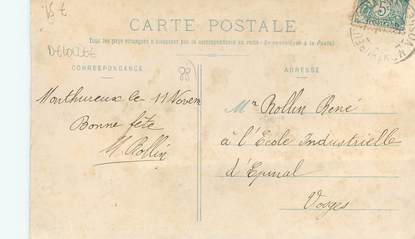 15 €
CARTE POSTALE
Tous les pays étrangers n'acceptent pas la correspondance au recto (Se renseigner à la Poste)
DELOIZEE
CORRESPONDANCE
ADRESSE
Monthureux le 11 Novem
Bonne fête
M Rollin
Mr Rollin René
à l'Ecole Industrielle
d'Epinal
Vosges
5